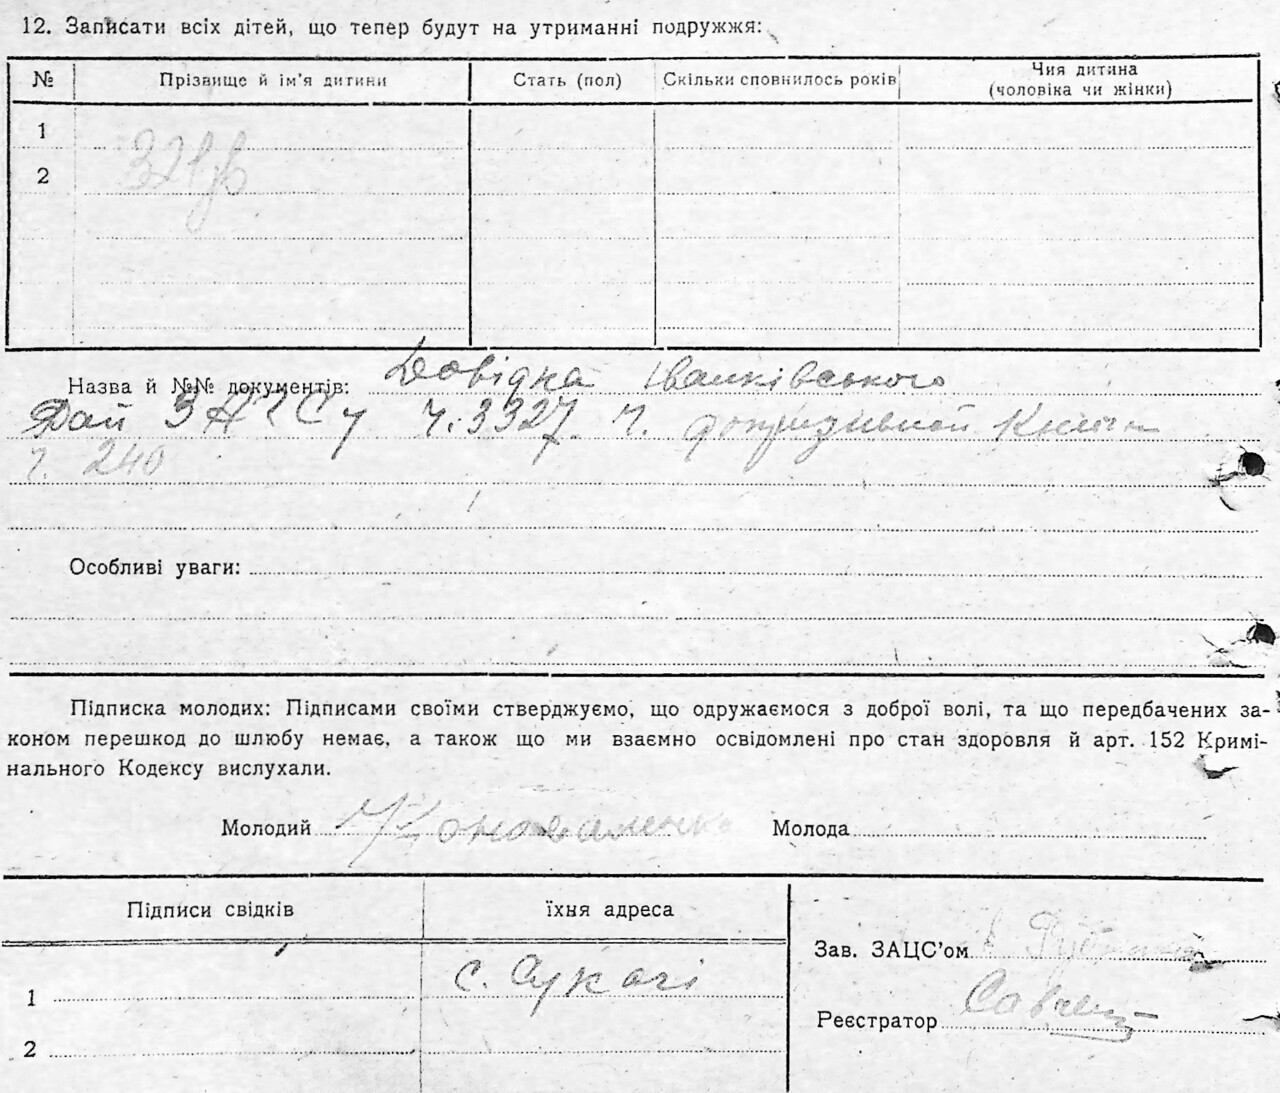 12. Записати всіх дітей, що тепер будут на утриманні подружжя:
№ Прізвище й ім'я дитини Стать (пол) Скільки сповнилось років Чия дитина (чоловіка чи жінки)
1
2
Назва й №№ документів: Довідка Іванківського
Рай ЗАГСу ч. 3327. ч. допризивной
ч. 240
Особливі уваги:
Підписка молодих: Підписами своїми стверджуємо, що одружаємося з доброї волі, та що передбачених за-
коном перешкод до шлюбу немає, а також що ми взаємно освідомлені про стан здоровля й арт. 152 Кримі-
нального Кодексу вислухали.
Молодий Коноваленко Молода
Підписи свідків їхня адреса
Зав. ЗАЦС'ом
1 с. Сукачі
Реєстратор
2